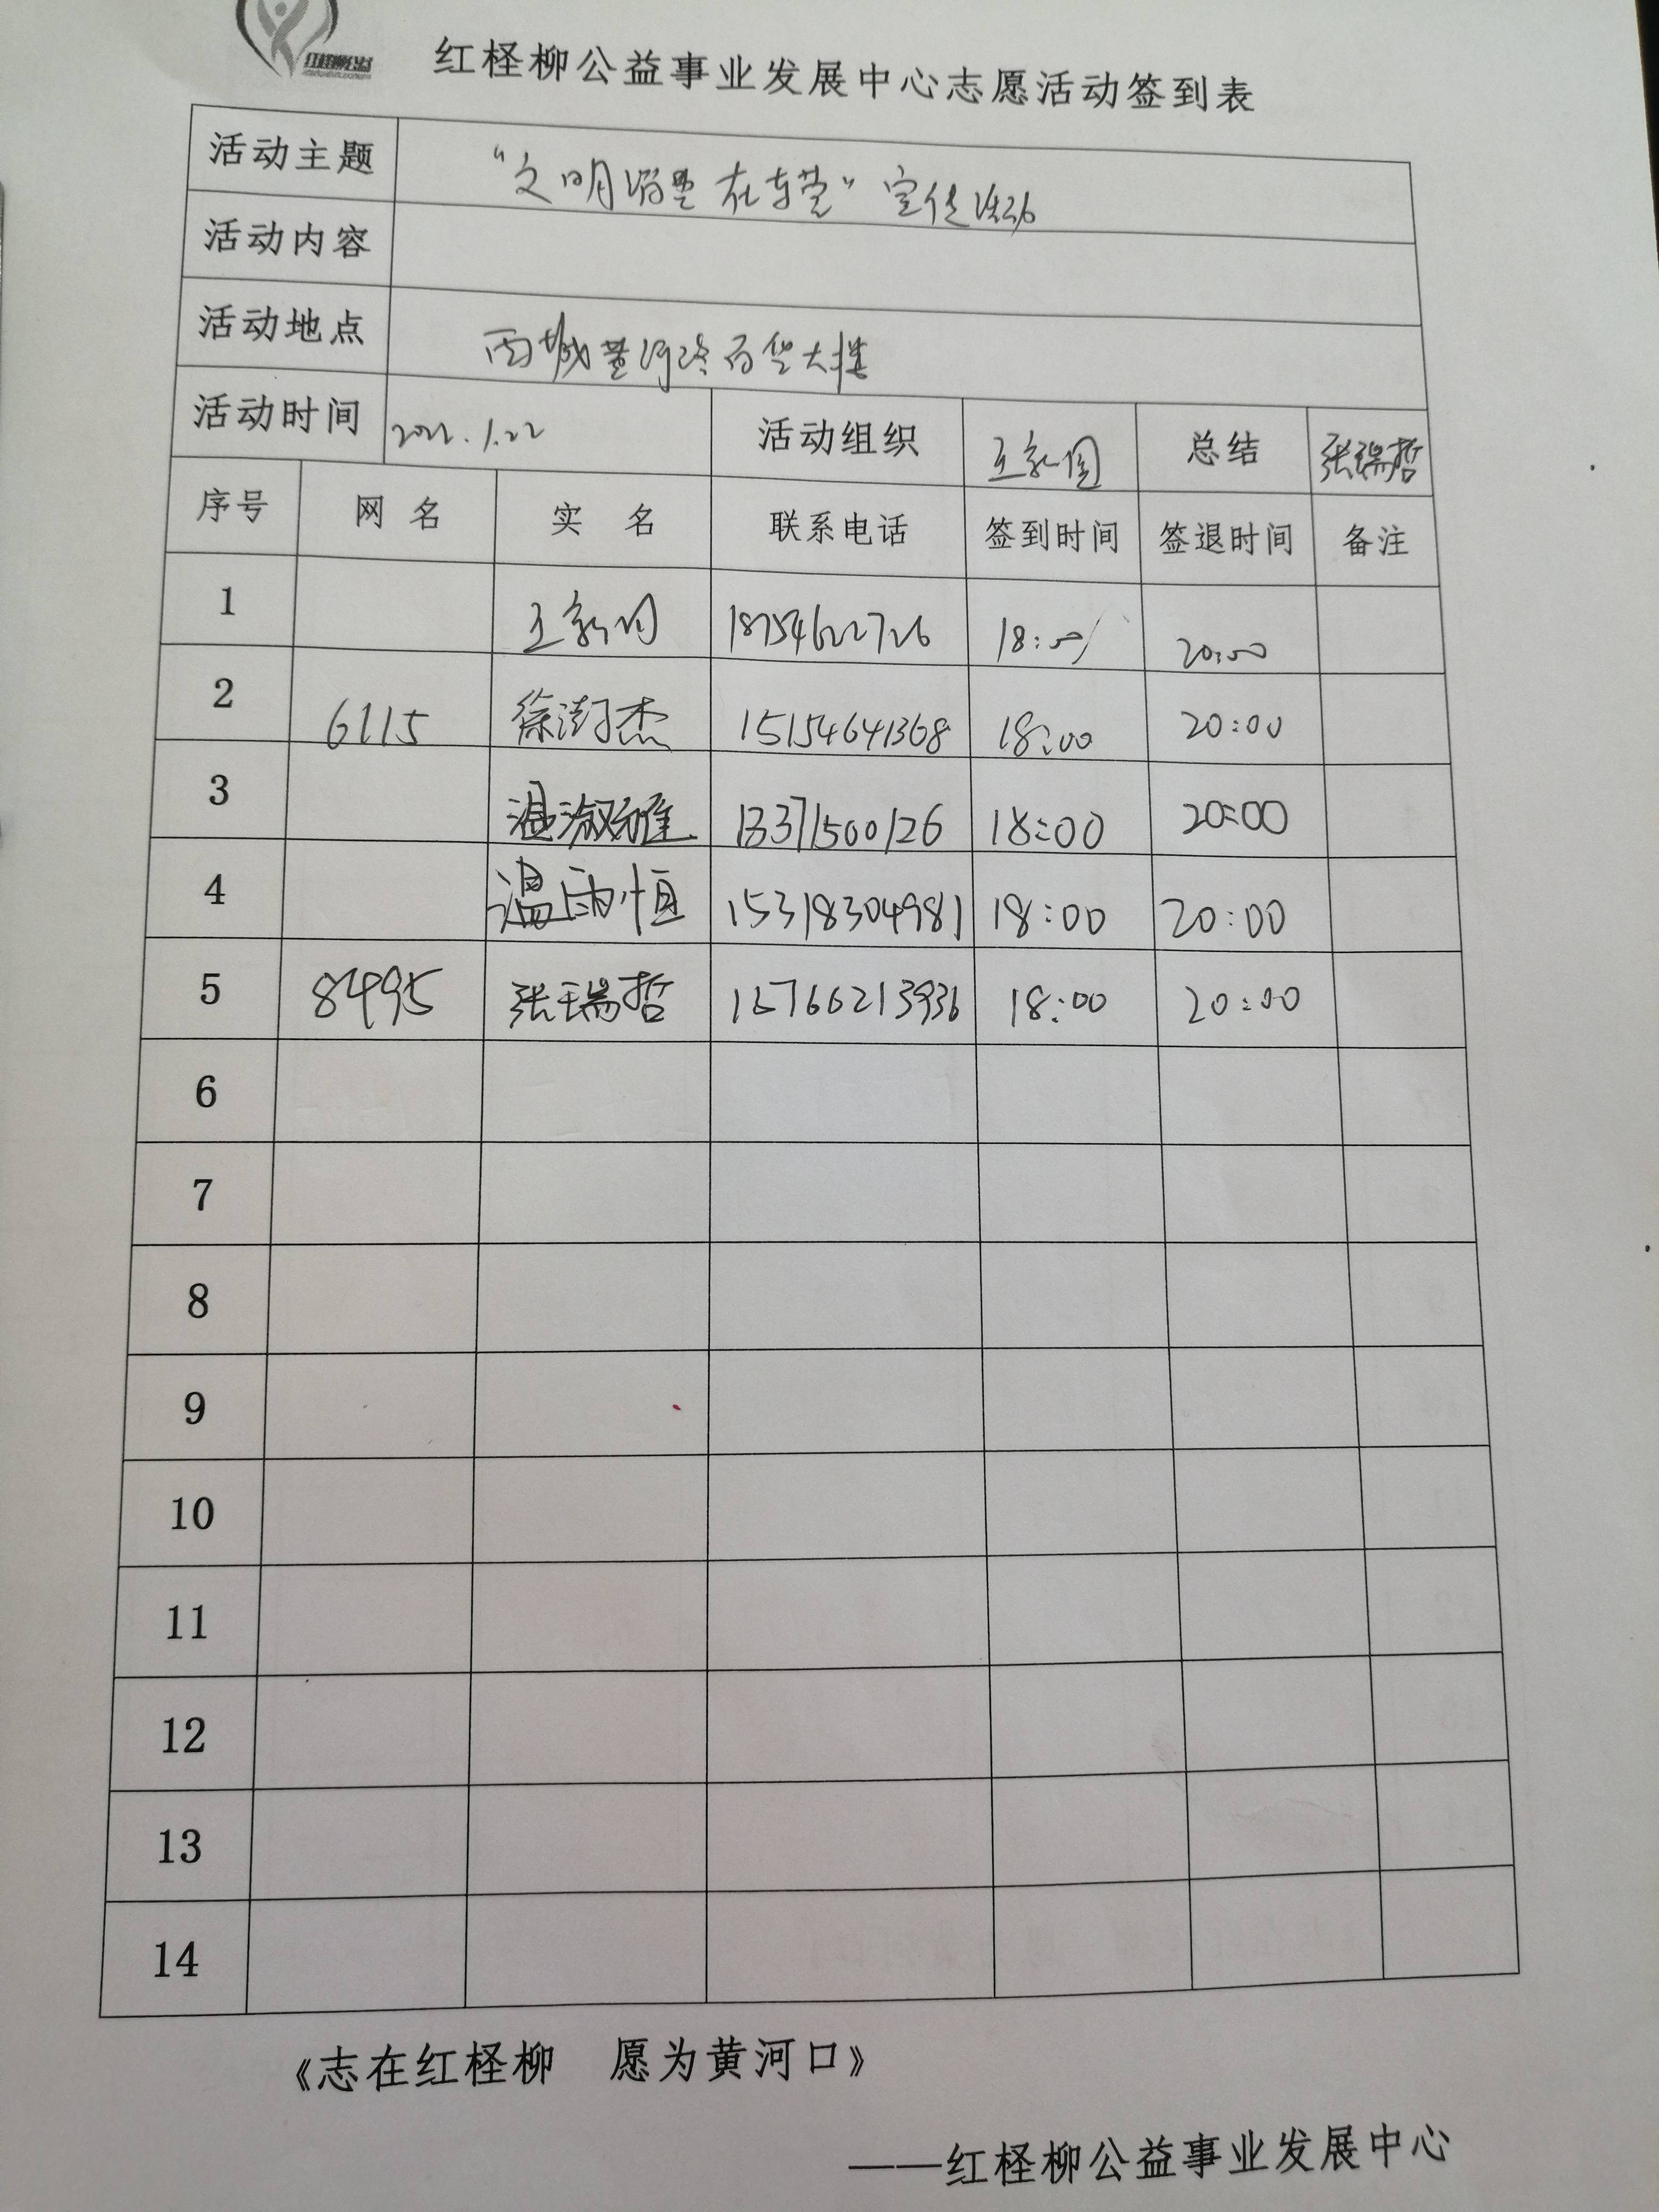 红柽柳公益
红柽柳公益事业发展中心志愿活动签到表
活动主题 “文明游星在东营”宣传活动
活动内容
活动地点 西城黄河路百货大楼
活动时间 2022.1.22 活动组织 总结 张瑞哲
序号 网名 实名 联系电话 签到时间 签退时间 备注
1 18754622726 18:00 20:00
2 6115 徐澍杰 15154641368 18:00 20:00
3 温淑雅 13371500126 18:00 20:00
4 温雨恒 15318304981 18:00 20:00
5 8495 张瑞哲 18:00 20:00
6
7
8
9
10
11
12
13
14
《志在红柽柳 愿为黄河口》
——红柽柳公益事业发展中心